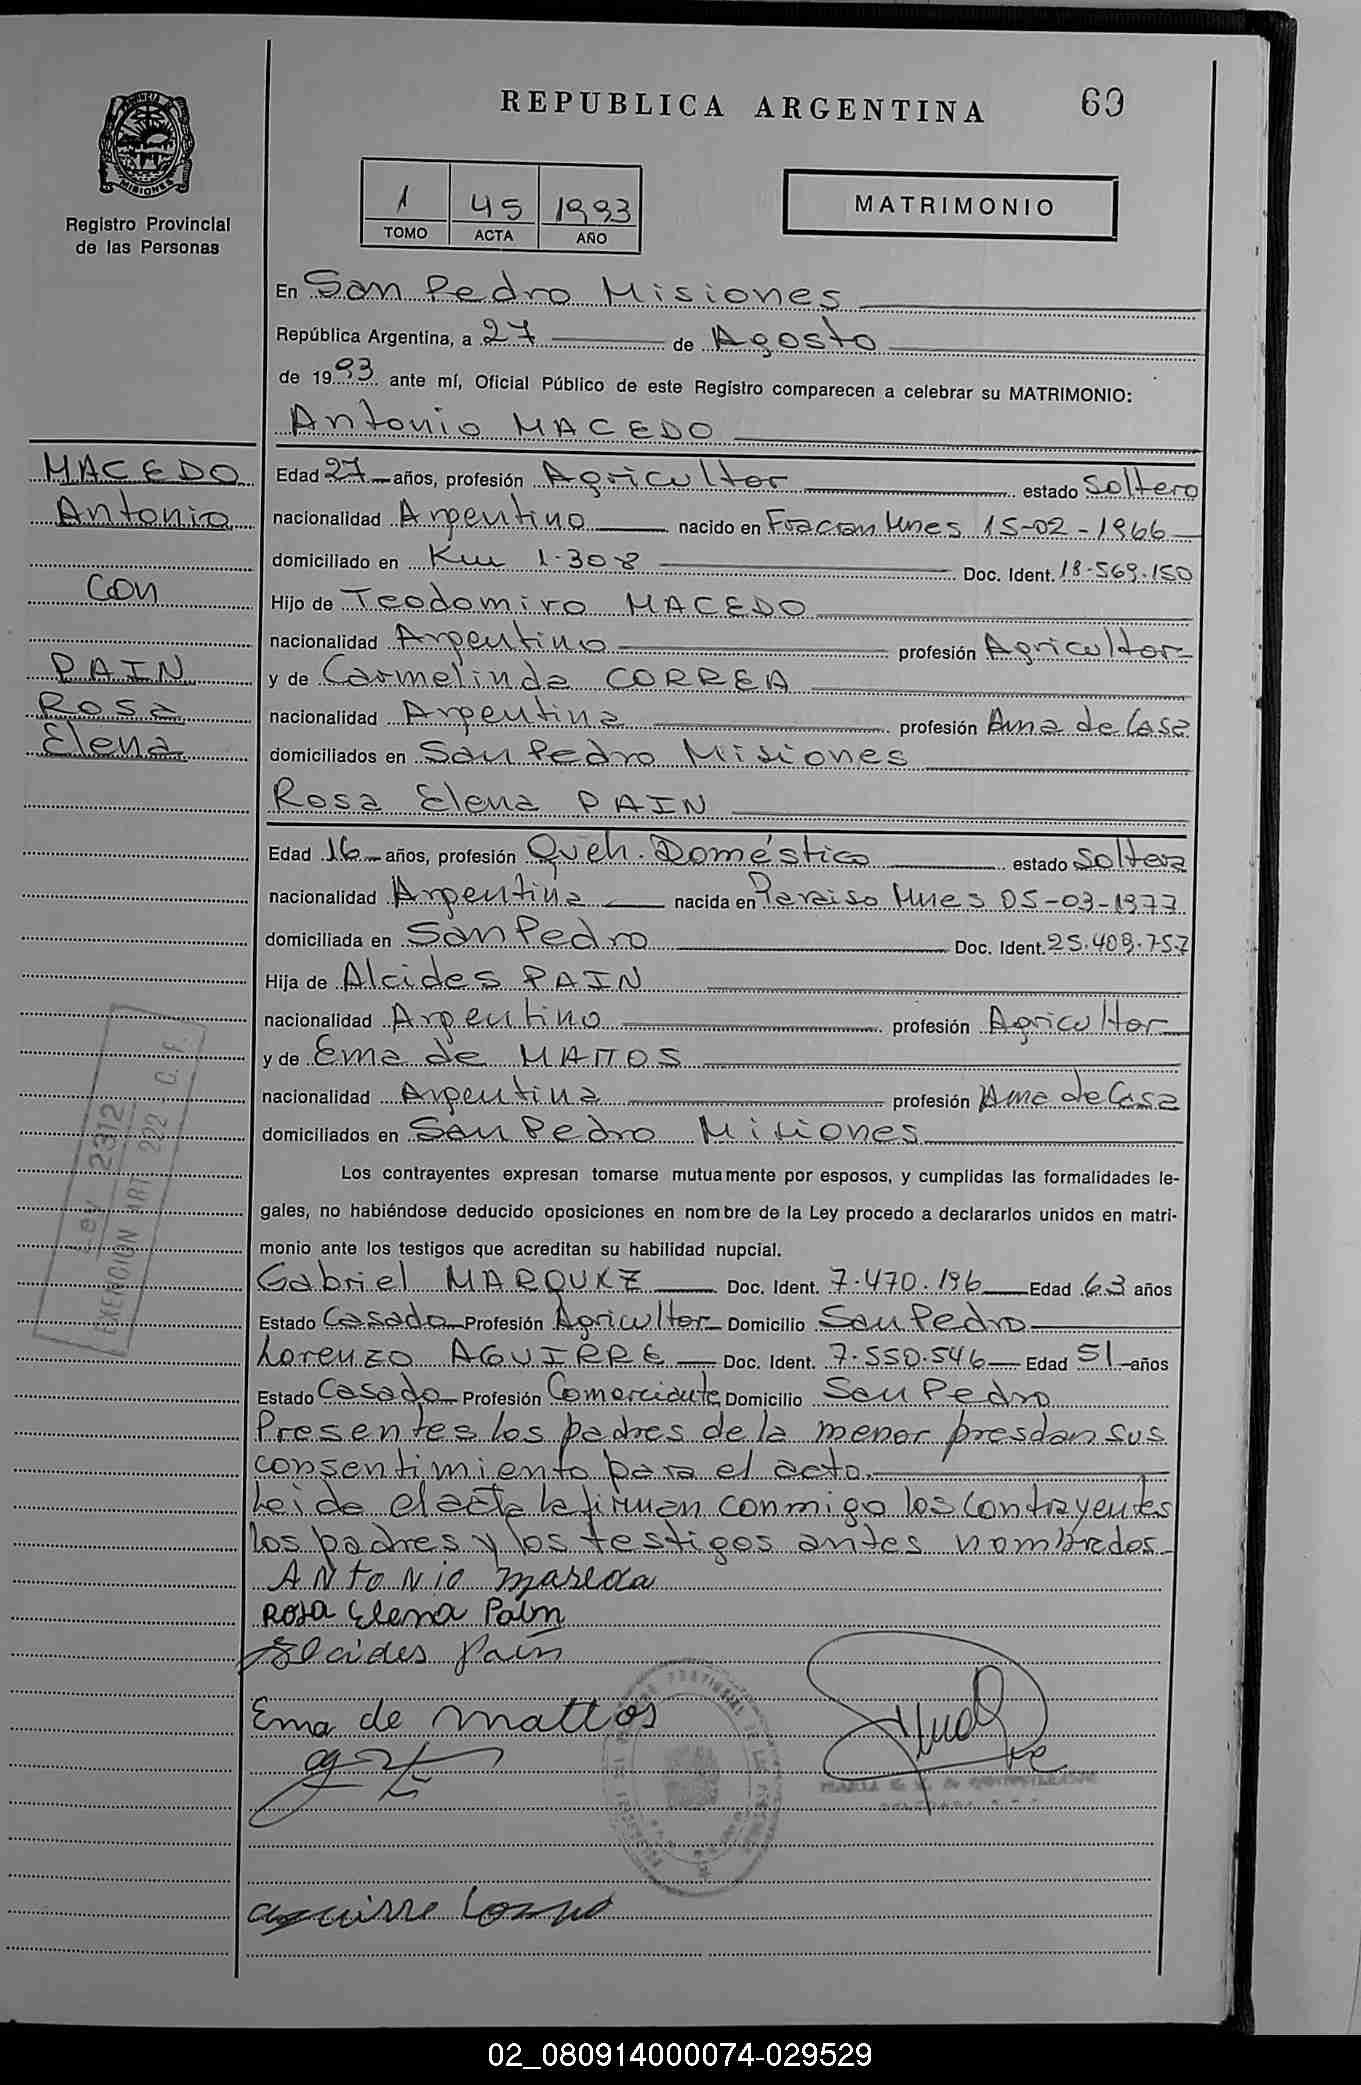 REPUBLICA ARGENTINA
69
PROVINCIA DE MISIONES
Registro Provincial
de las Personas
1 45 1993
TOMO ACTA AÑO
MATRIMONIO
En San Pedro Misiones
República Argentina, a 27 de Agosto
de 1993 ante mí, Oficial Público de este Registro comparecen a celebrar su MATRIMONIO:
Antonio MACEDO
MACEDO
Antonio
con
PAIN
Rosa
Elena
Edad 27 años, profesión Agricultor estado Soltero
nacionalidad Argentino nacido en Fracran Mnes 15-02-1966
domiciliado en Km 1.308 Doc. Ident. 18.569.150
Hijo de Teodomiro MACEDO
nacionalidad Argentino profesión Agricultor
y de Carmelinda CORREA
nacionalidad Argentina profesión Ama de Casa
domiciliados en San Pedro Misiones
Rosa Elena PAIN
Edad 16 años, profesión Queh. Doméstico estado Soltera
nacionalidad Argentina nacida en Paraiso Mnes 05-03-1977
domiciliada en San Pedro Doc. Ident. 25.409.757
Hija de Alcides PAIN
nacionalidad Argentino profesión Agricultor
y de Ema de MATTOS
nacionalidad Argentina profesión Ama de Casa
domiciliados en San Pedro Misiones
Ley 2312
EXENCION ART 222 C.F.
Los contrayentes expresan tomarse mutuamente por esposos, y cumplidas las formalidades le-
gales, no habiéndose deducido oposiciones en nombre de la Ley procedo a declararlos unidos en matri-
monio ante los testigos que acreditan su habilidad nupcial.
Gabriel MARQUEZ Doc. Ident. 7.470.196 Edad 63 años
Estado Casado Profesión Agricultor Domicilio San Pedro
Lorenzo AGUIRRE Doc. Ident. 7.550.546 Edad 51 años
Estado Casado Profesión Comerciante Domicilio San Pedro
Presentes los padres de la menor presdan sus
consentimiento para el acto.
Leida el acta la firman conmigo los contrayentes
los padres y los testigos antes nombrados
ANTONIO maseda
Rosa Elena Pain
Elcides Pain
Ema de mattos
aguirre
02_080914000074-029529